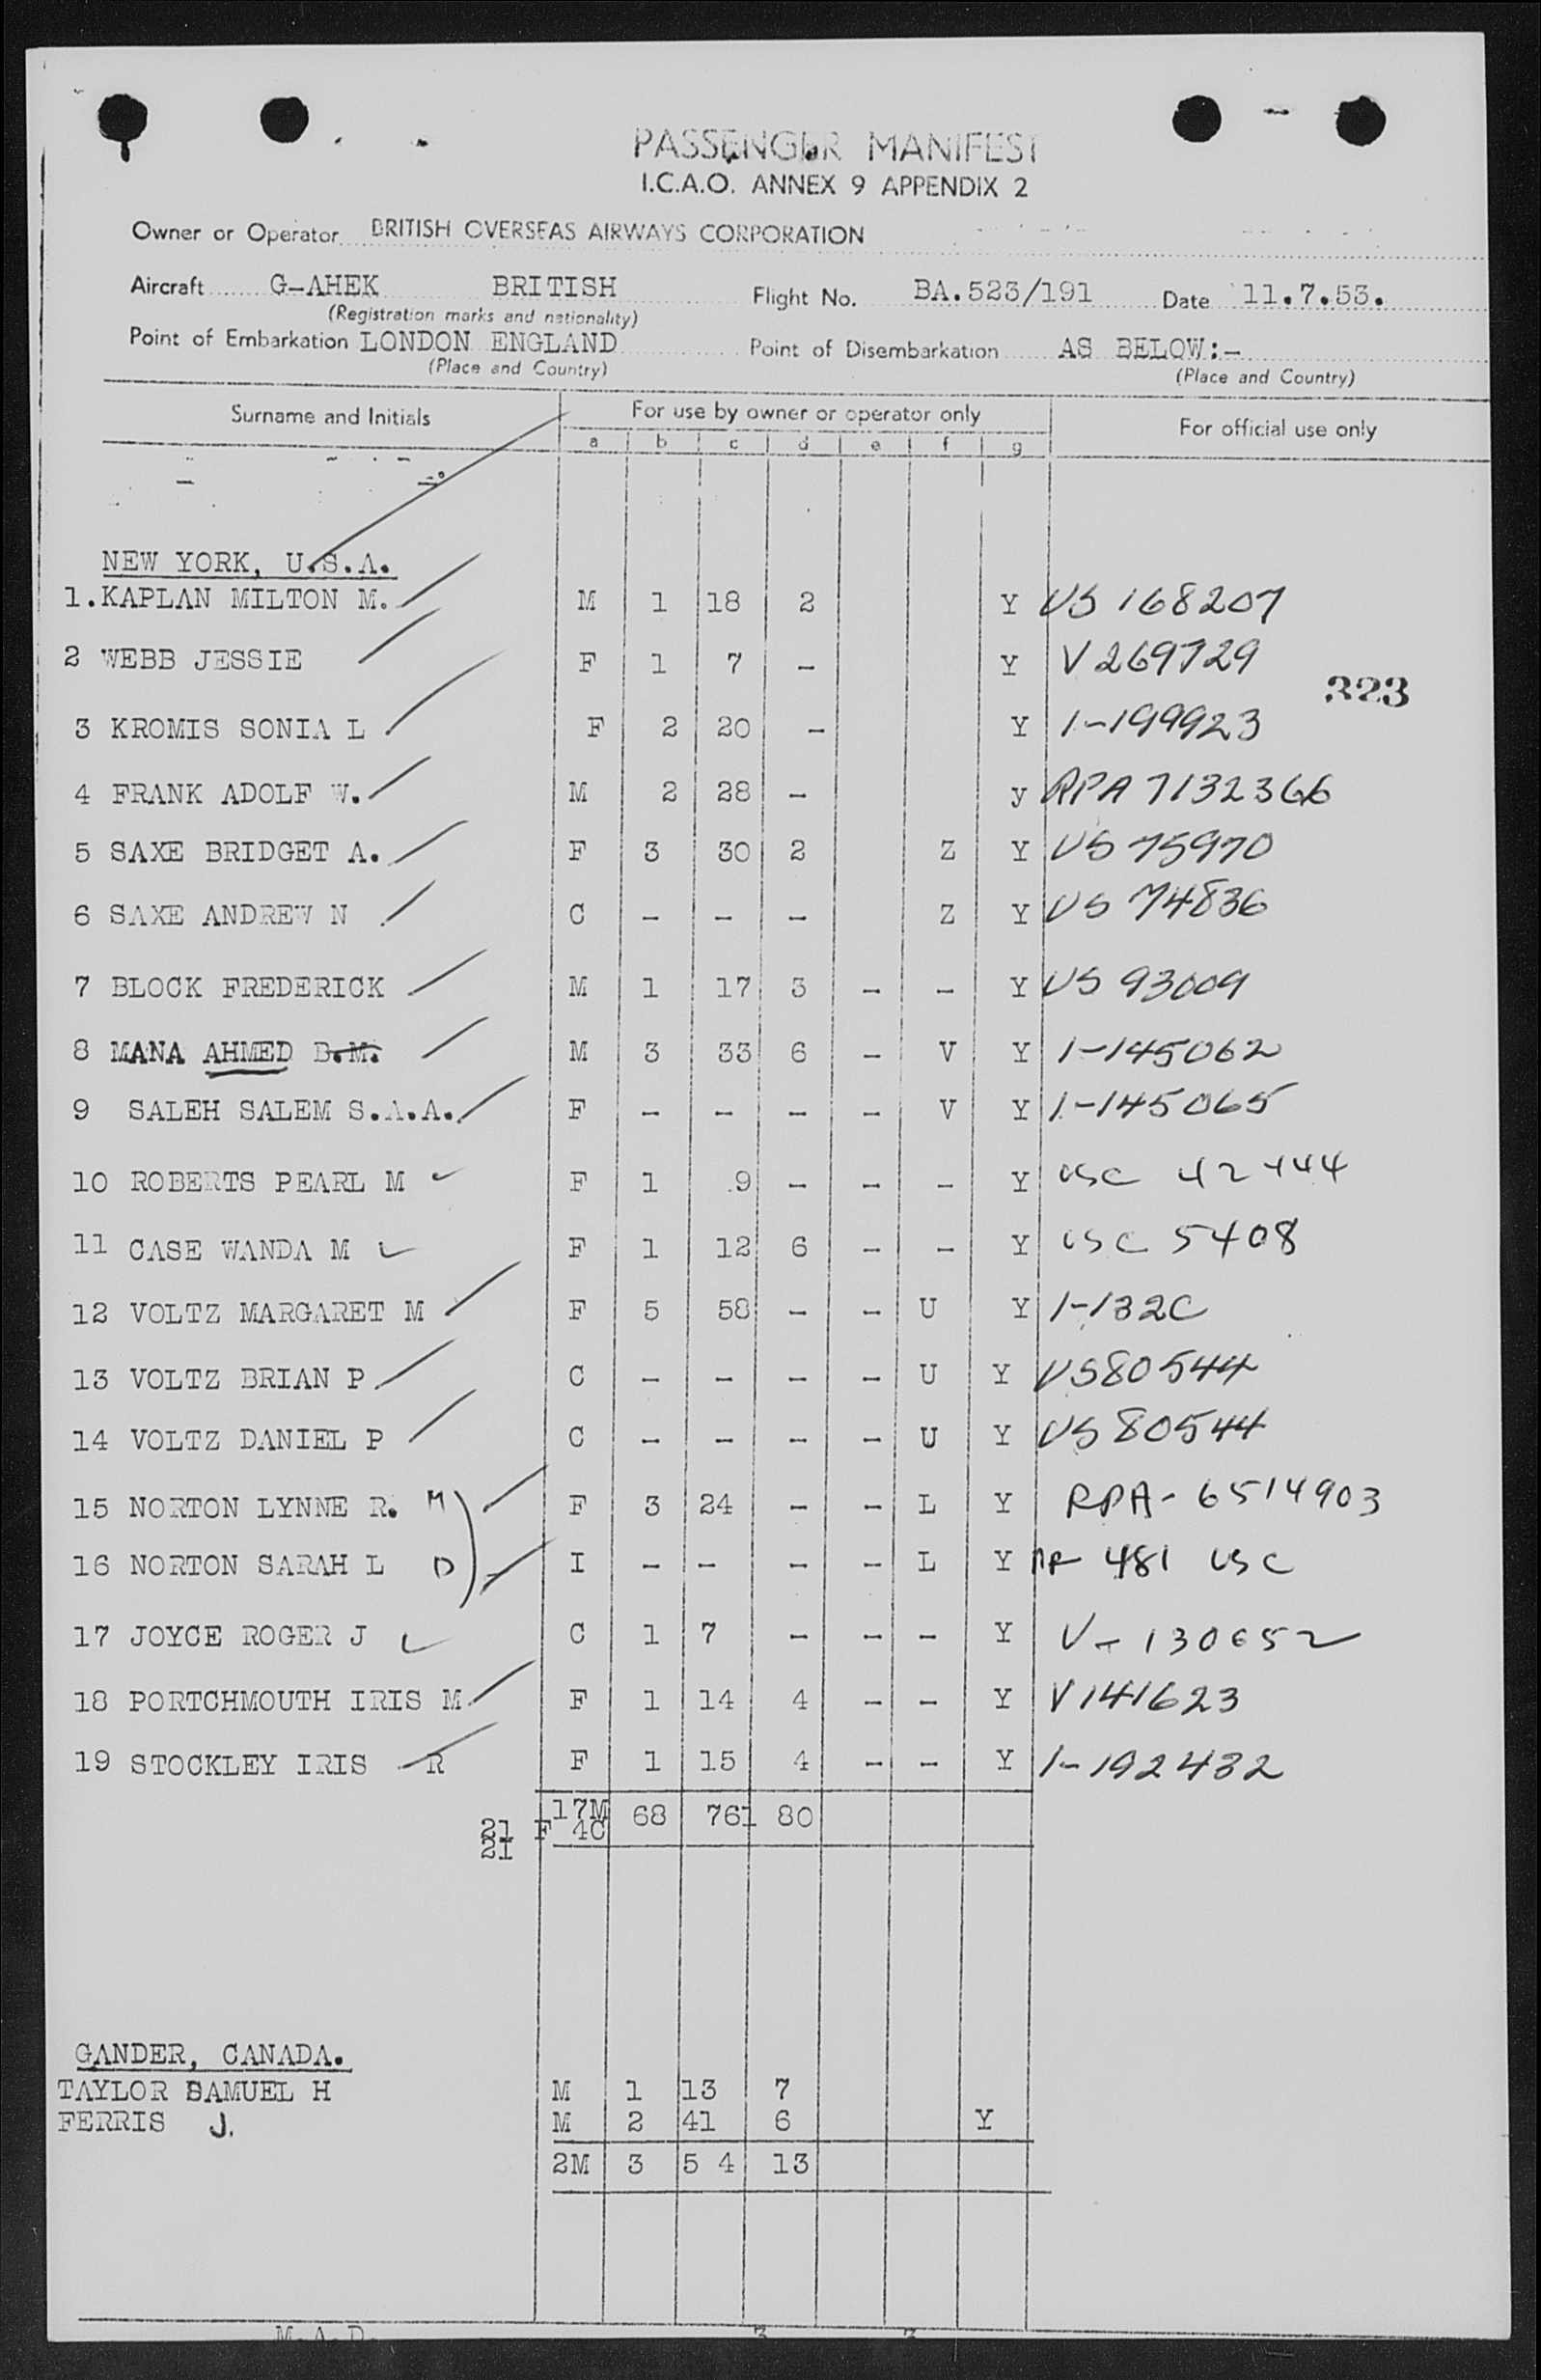 PASSENGER MANIFEST
I.C.A.O. ANNEX 9 APPENDIX 2
Owner or Operator BRITISH OVERSEAS AIRWAYS CORPORATION
Aircraft G-AHEK BRITISH Flight No. BA.523/191 Date 11.7.53.
(Registration marks and nationality)
Point of Embarkation LONDON ENGLAND Point of Disembarkation AS BELOW:-
(Place and Country) (Place and Country)
Surname and Initials For use by owner or operator only For official use only
a b c d e f g
NEW YORK, U.S.A.
1. KAPLAN MILTON M. M 1 18 2 Y US 168207
2 WEBB JESSIE F 1 7 - Y V 269729
323
3 KROMIS SONIA L F 2 20 - Y 1-199923
4 FRANK ADOLF W. M 2 28 - y RPA 7132366
5 SAXE BRIDGET A. F 3 30 2 Z Y US 75970
6 SAXE ANDREW N C - - - Z Y US 74836
7 BLOCK FREDERICK M 1 17 3 - - Y US 93009
8 MANA AHMED B.M. M 3 33 6 - V Y 1-145062
9 SALEH SALEM S.A.A. F - - - - V Y 1-145065
10 ROBERTS PEARL M F 1 9 - - - Y USC 42444
11 CASE WANDA M F 1 12 6 - - Y USC 5408
12 VOLTZ MARGARET M F 5 58 - - U Y 1-132C
13 VOLTZ BRIAN P C - - - - U Y US80544
14 VOLTZ DANIEL P C - - - - U Y US 80544
15 NORTON LYNNE R. M F 3 24 - - L Y RPA-6514903
16 NORTON SARAH L D I - - - - L Y 481 USC
17 JOYCE ROGER J C 1 7 - - - Y V-130652
18 PORTCHMOUTH IRIS M F 1 14 4 - - Y V141623
19 STOCKLEY IRIS R F 1 15 4 - - Y 1-192432
17M 68 761 80
21 F 4C
2I
GANDER, CANADA.
TAYLOR SAMUEL H M 1 13 7
FERRIS J. M 2 41 6 Y
2M 3 5 4 13